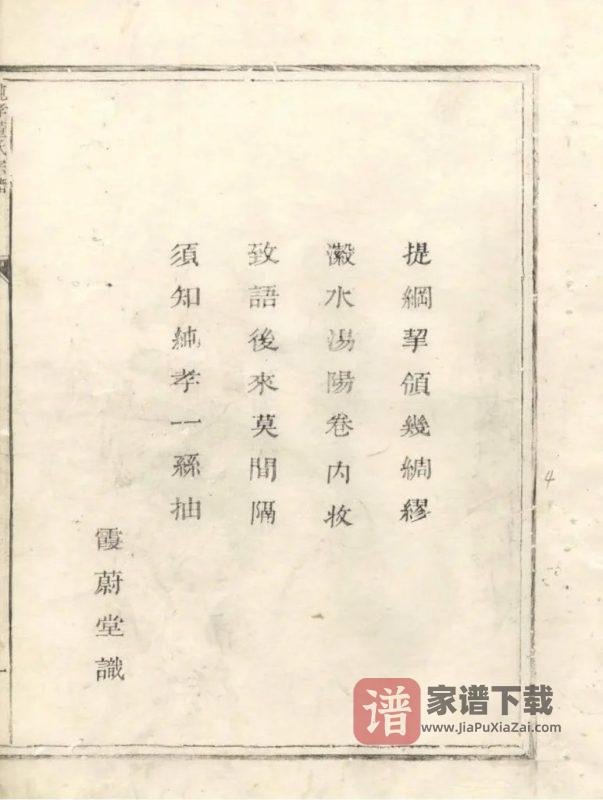 提綱挈領幾綢繆
瀫水湯陽卷内收
致語後來莫間隔
須知純孝一絲抽
霞蔚堂識
純孝董氏宗譜
4
谱
家谱下载
www.JiaPuXiaZai.com